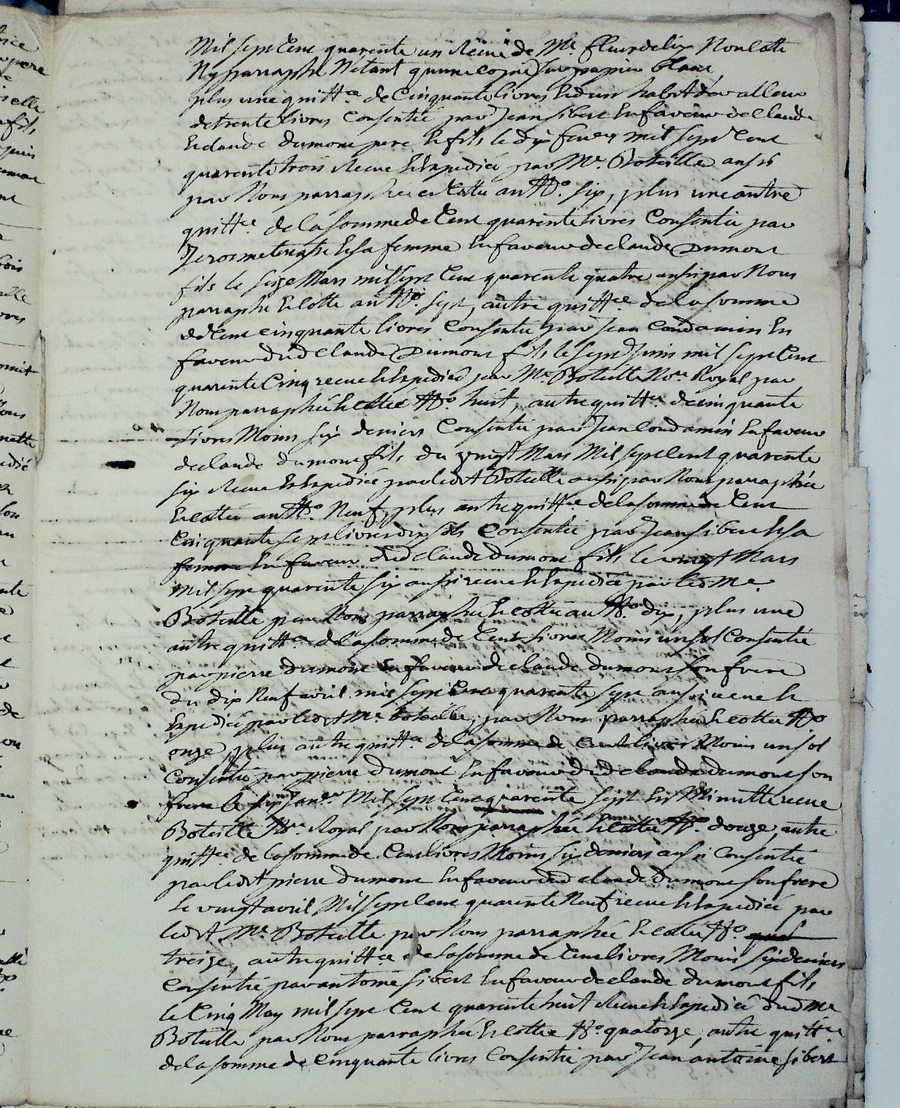 Mil sept Cent quarente un Receue de Me fleurdelix Non Cotté
Ny parraphé N'etant qu'une copie sur papier blanc
plus une quitt.ce de Cinquante livres Et d'un habit de valleur
de trente livres Consentie par Jean Sibert En faveur de Claude
Et claude dumont pere Et fils le dix fevrer mil sept Cent
quarente trois Receue Et Expediée par Me. Boteille aussy
par Nous parraphée et Cottée au No. Six, plus une autre
quitt.ce de la somme de Cent quarente livres Consentie par
Et sa femme En faveur de claude Dumont
fils le seize Mars mil sept Cent quarente quatre aussi par Nous
parraphé Et cotté au No. Sept, autre quitt.ce de la somme
de Cent cinquante livres Consentie par Jean Condamin En
faveur dud Claude Dumont fils le sept Juin mil sept Cent
quarente Cinq receue Et Expediée par Me Boteille No.re Royal par
Nous parraphée Et cottée No. huit, autre quitt.ce de cinquante
livres Moins six deniers Consentie par Jean Condamin En faveur
de claude dumont fils du vingt Mars Mil sept Cent quarente
six Receue Et Expediée par led.t Boteille aussi par Nous paraphée
Et cottée au No. Neuf, plus autre quitt.ce de la somme de Cent
Cinquante sept livres dix sols Consentie par Jean Sibert Et sa
femme En faveur dud claude dumont fils le vingt Mars
mil sept quarente six aussi receue Et Expediée par led Me.
Boteille par Nous parraphée Et cottée au No. dix, plus une
autre quitt.ce de la somme de Cent livres Moins un sol Consentie
par pierre dumont En faveur de claude dumont son frere
du dix Neuf avril mil sept Cent quarente sept aussi receue Et
Expediée par led.t Me. Boteille, par Nous parraphée Et cottée No
onze, plus autre quitt.ce de la somme de Cent livres Moins un sol
Consentie par pierre dumont En faveur dud claude dumont son
frere le six Jan.er Mil sept Cent quarente sept En Minutte receue
Boteille No.re Royal par Nous parraphée Et cottée No. douze, autre
quitt.ce de la somme de Cent livres Moins six deniers aussi Consentie
par led.t pierre dumont En faveur dud claude dumont son frere
le vingt avril Mil sept Cent quarente Neuf receue Et Expediée par
led.t Me. Boteille par Nous parraphée Et cottée No
treize, autre quitt.ce de la somme de Cent livres Moins six deniers
Consentie par antoine sibert En faveur de claude dumont fils
le Cinq May mil sept Cent quarente huit Receue Et Expediée dud Me
Boteille par Nous parraphée Et cottée No. quatorze, autre quitt.ce
de la somme de Cinquante livres Consentie par Jean antoine sibert